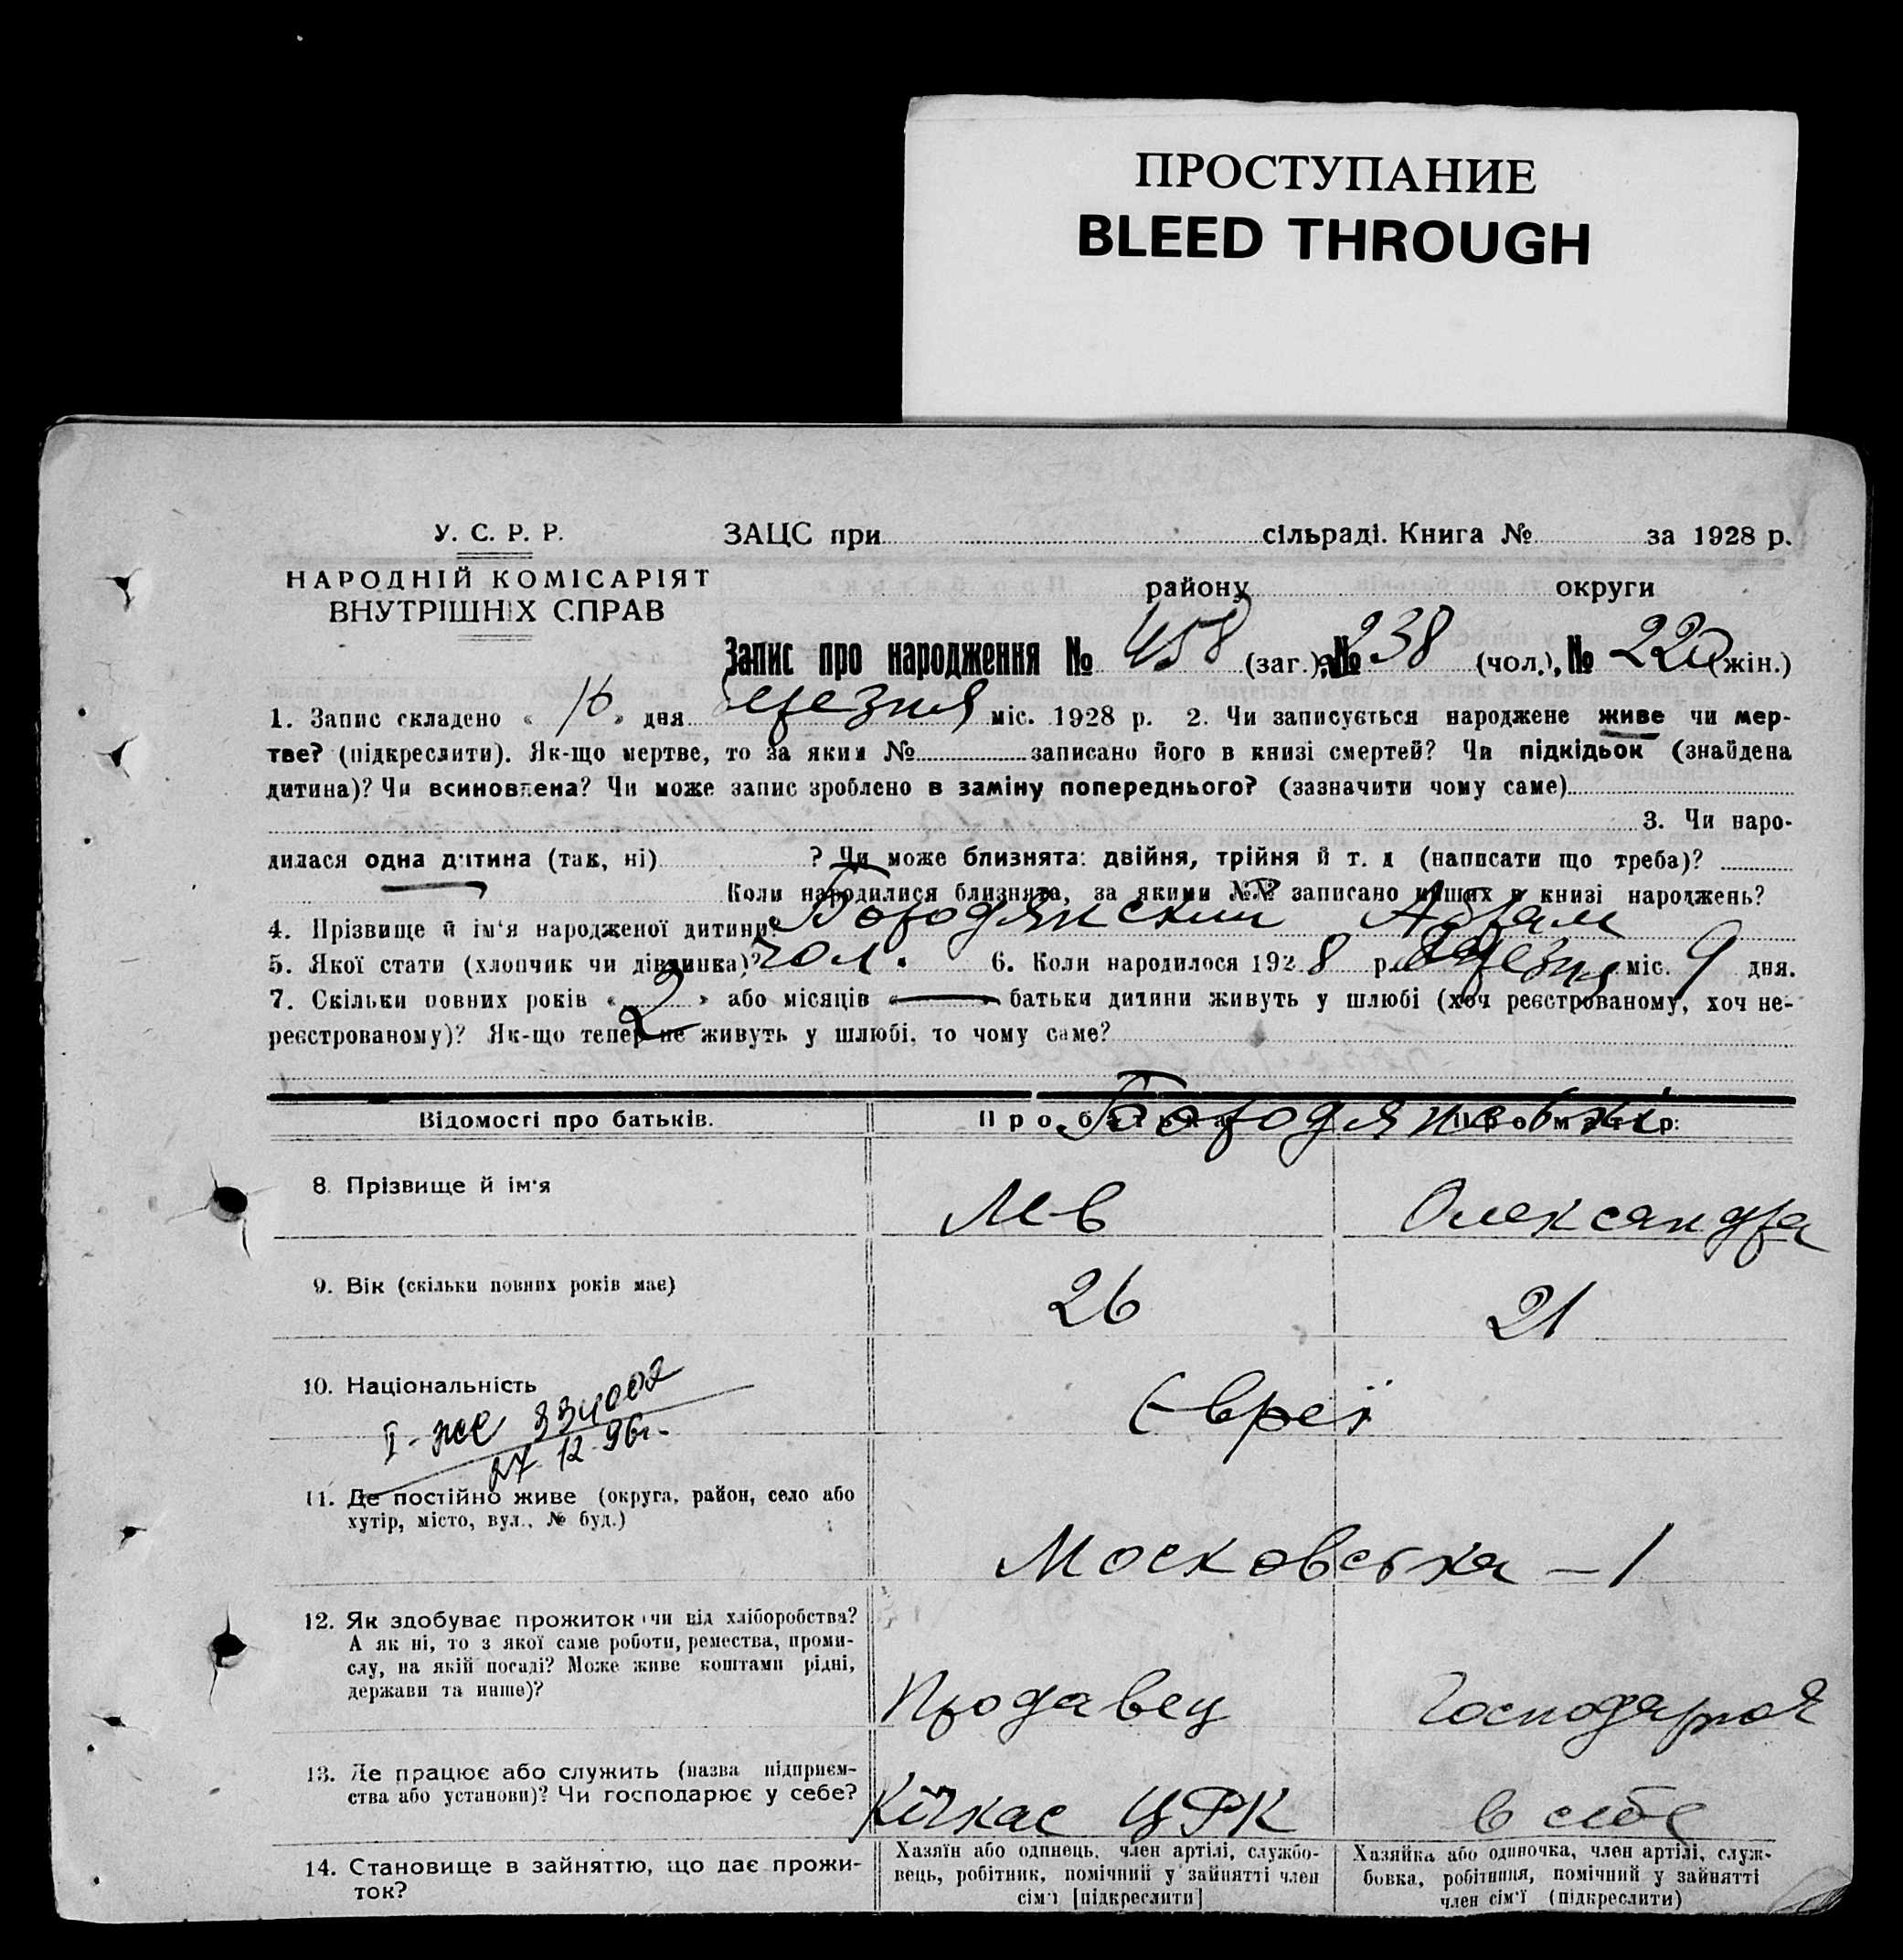 ПРОСТУПАНИЕ
BLEED THROUGH
У. С. Р. Р.
ЗАЦС при сільраді. Книга № за 1928 р.
НАРОДНІЙ КОМІСАРІЯТ
ВНУТРІШНІХ СПРАВ
району округи
Запис про народження № 458 (заг.), № 238 (чол.), № 220 (жін.)
1. Запис складено « 16 » дня березня міс. 1928 р. 2. Чи записується народжене живе чи мер-
тве? (підкреслити). Як-що мертве, то за яким № записано його в книзі смертей? Чи підкідьок (знайдена
дитина)? Чи всиновлена? Чи може запис зроблено в заміну попереднього? (зазначити чому саме)
3. Чи наро-
дилася одна дитина (так, ні) ? Чи може близнята: двійня, трійня й т. д (написати що треба)?
Коли народилися близнята, за якими №№ записано инших в книзі народжень?
4. Прізвище й ім'я народженої дитини? Бородянский Абрам
5. Якої стати (хлопчик чи дівчинка)? чол. 6. Коли народилося 1928 р. березня міс. 9 дня.
7. Скільки повних років « 2 » або місяців « — » батьки дитини живуть у шлюбі (хоч реєстрованому, хоч не-
реєстрованому)? Як-що тепер не живуть у шлюбі, то чому саме?
Відомості про батьків. Про батька Про матір:
Бородянські
8. Прізвище й ім'я Лев Олександра
9. Вік (скільки повних років має) 26 21
10. Національність Євреї
I-ЖС 334002
27.12.96г.
11. Де постійно живе (округа, район, село або
хутір, місто, вул., № буд.)
Московська – 1
12. Як здобуває прожиток (чи від хліборобства?
А як ні, то з якої саме роботи, ремества, проми-
слу, на якій посаді? Може живе коштами рідні,
держави та инше)?
Продавец Господарює
13. Де працює або служить (назва підприєм-
ства або установи)? Чи господарює у себе?
Кічкас ЦРК в себе
14. Становище в зайняттю, що дає прожи-
ток?
Хазяїн або одинець, член артілі, службо-
вець, робітник, помічний у зайнятті член
сім'ї [підкреслити]
Хазяйка або одиночка, член артілі, служ-
бовка, робітниця, помічний у зайнятті
член сім'ї (підкреслити)